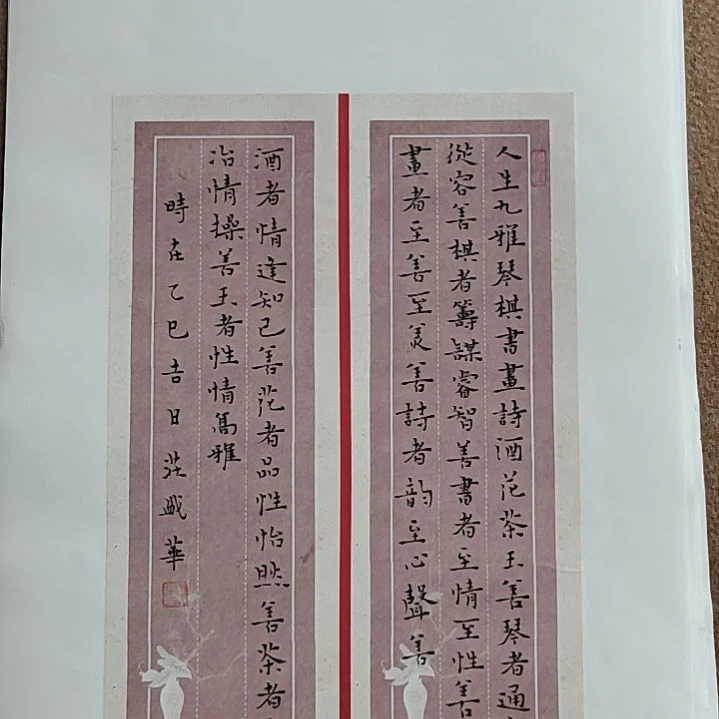 人生九雅琴棋書畫詩酒花茶玉善琴者通
從容善棋者籌謀睿智善書者至情至性善
畫者至善至美善詩者韵至心聲善
酒者情逢知己善花者品性怡然善茶者
冶情操善玉者性情高雅
時在乙巳吉日莊盛華